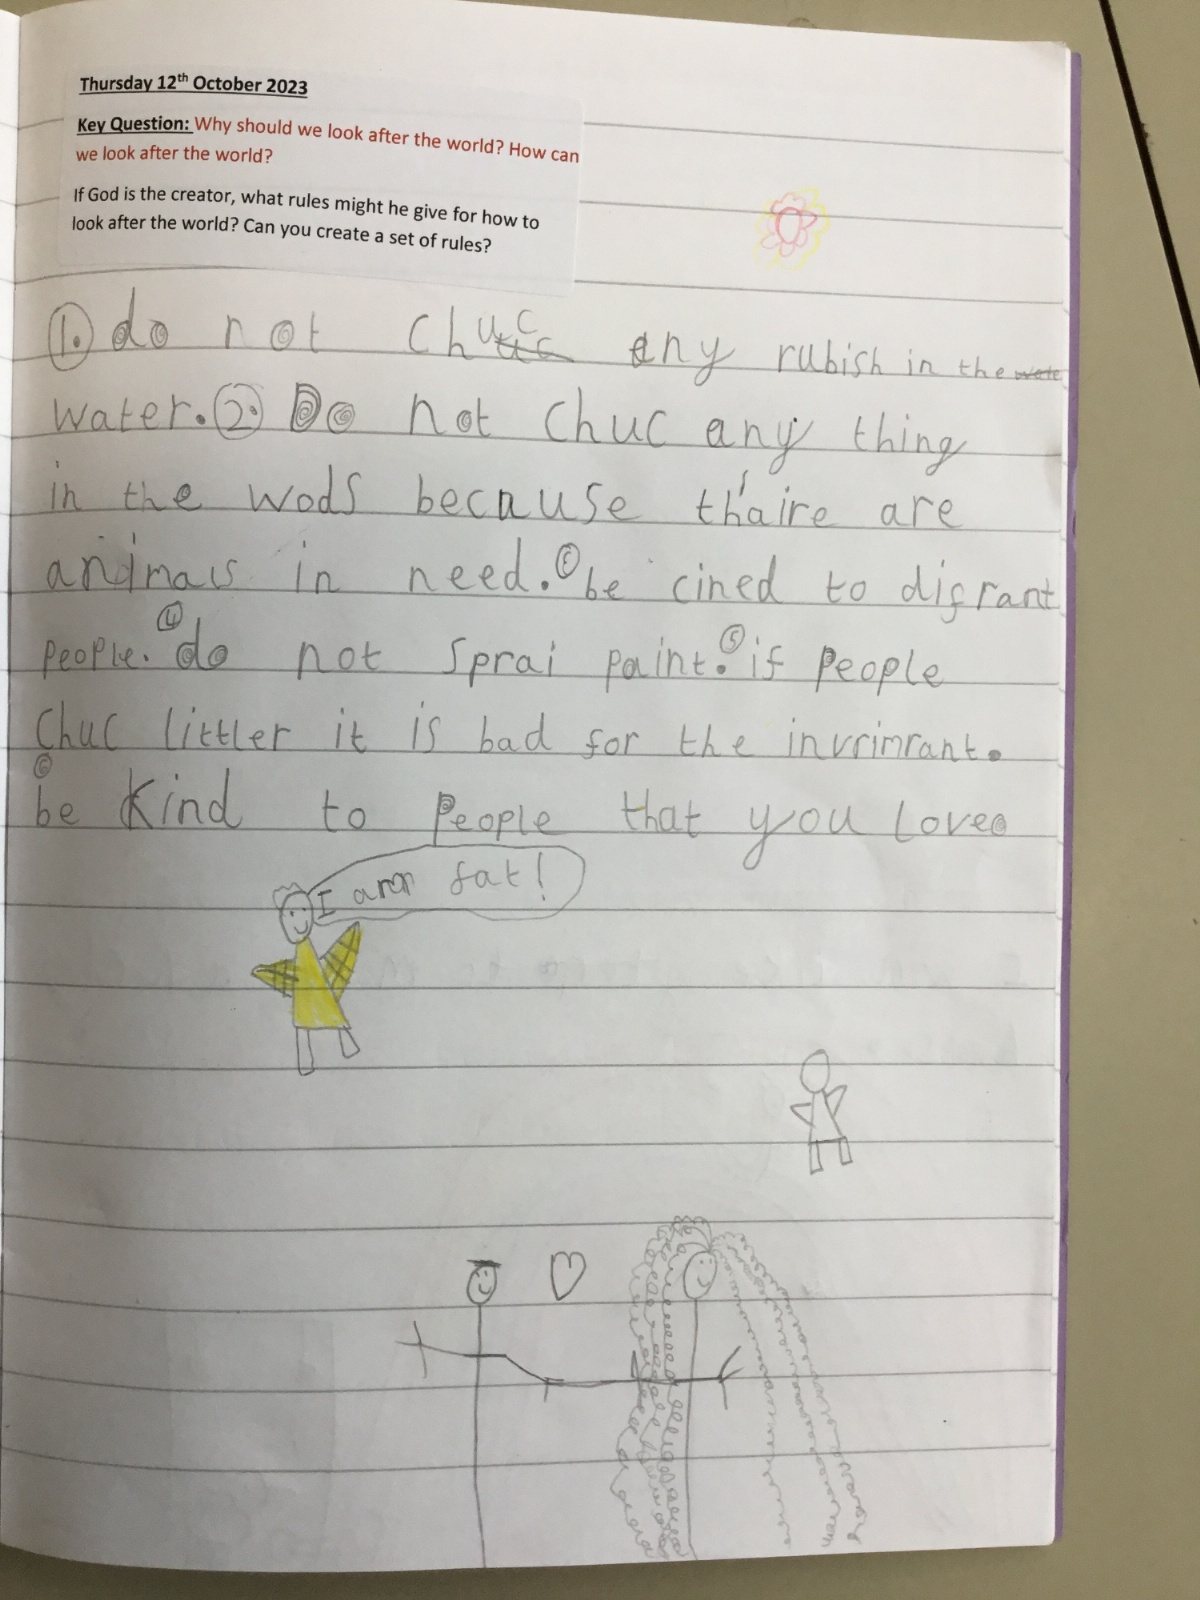 Thursday 12th October 2023
Key Question: Why should we look after the world? How can
we look after the world?
If God is the creator, what rules might he give for how to
look after the world? Can you create a set of rules?
1. do not Chuc any rubish in the
water. 2. Do not Chuc any thing
in the wods because thaire are
animals in need. be cined to difrant
people. 4 do not Sprai paint. 5 if people
Chuc littler it is bad for the invrimrant.
be kind to People that you Love
I am fat!